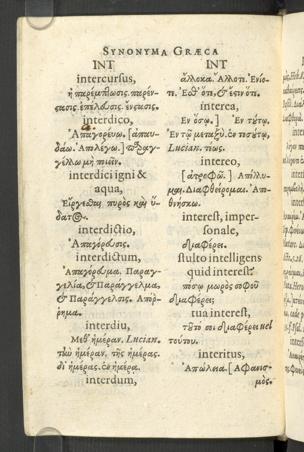 SYNONYMA GRÆCA
INT
intercursus,
ἡ παρέμπτωσις. παρέν-
τασις. ἐπέλευσις. ἔντασις.
interdico,
Ἀπαγορεύω. [ἀπαυ-
δάω. Ἀπολέγω.] παραγ-
γέλλω μὴ ποιεῖν.
interdici igni &
aqua,
Εἴργεσθαι πυρὸς καὶ ὕ-
δατος.
interdictio,
Ἀπαγόρευσις.
interdictum,
Ἀπαγόρευμα. Παραγ-
γελία, & Παράγγελμα,
& Παράγγελσις. Ἀπόρ-
ρημα.
interdiu,
Μεθ' ἡμέραν. Lucian.
τὴν ἡμέραν. τῆς ἡμέρας.
δι' ἡμέρας. ἐν ἡμέρᾳ.
interdum,
INT
ἄλλοκα. Ἄλλοτε. Ἐνίο-
τε. Ἔσθ' ὅτε, & ἔστιν ὅτε.
interea,
Ἐν ὅσῳ. ] Ἐν τούτῳ.
Ἐν τῷ μεταξύ. ἐν τοσούτῳ,
Lucian. τέως.
intereo,
[ἀτροφῶ. ] Ἀπόλλυ-
μαι. Διαφθείρομαι. Ἀπο-
θνήσκω.
interest, imper-
sonale,
διαφέρει.
stulto intelligens
quid interest?
πόσῳ μωρὸς σοφοῦ
διαφέρει;
tua interest,
τοῦτό σοι διαφέρει vel
τούτου.
interitus,
Ἀπώλεια. [Ἀφανισ-
μός.